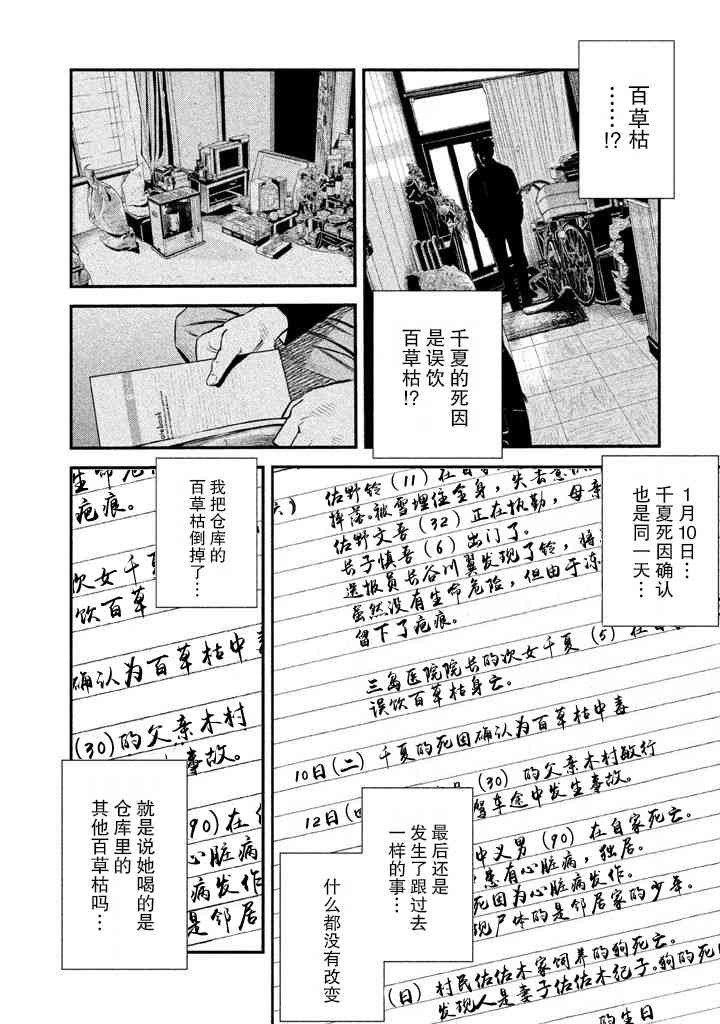 百草枯
……!?
千夏的死因
是误饮
百草枯!?
1月10日…
千夏死因确认
也是同一天…
佐野铃（11）在自
摔落。被雪埋住全身，失去意
佐野文吾（32）正在执勤，母亲
长子慎吾（6）出门了。
送报员长谷川翼发现了铃，
虽然没有生命危险，但由于冻
留下了疤痕。
三岛医院院长的次女千夏（5）在
误饮百草枯身亡。
10日（二）千夏的死因确认为百草枯中毒
（30）的父亲木村敏行
驾车途中发生事故。
12日（四
中义男（90）在自家死亡。
患有心脏病，独居。
死因为心脏病发作。
现尸体的是邻居家的少年。
（日）村民佐佐木家饲养的狗死亡。
发现人是妻子佐佐木纪子。狗的死
的生日
最后还是
发生了跟过去
一样的事…
什么都没有改变
我把仓库的
百草枯倒掉了…
生命危
疤痕。
次女千夏
饮百草
确认为百草枯中毒
（30）的父亲木村
事故。
90）在
心脏病
病发作
是邻居
就是说她喝的是
仓库里的
其他百草枯吗…